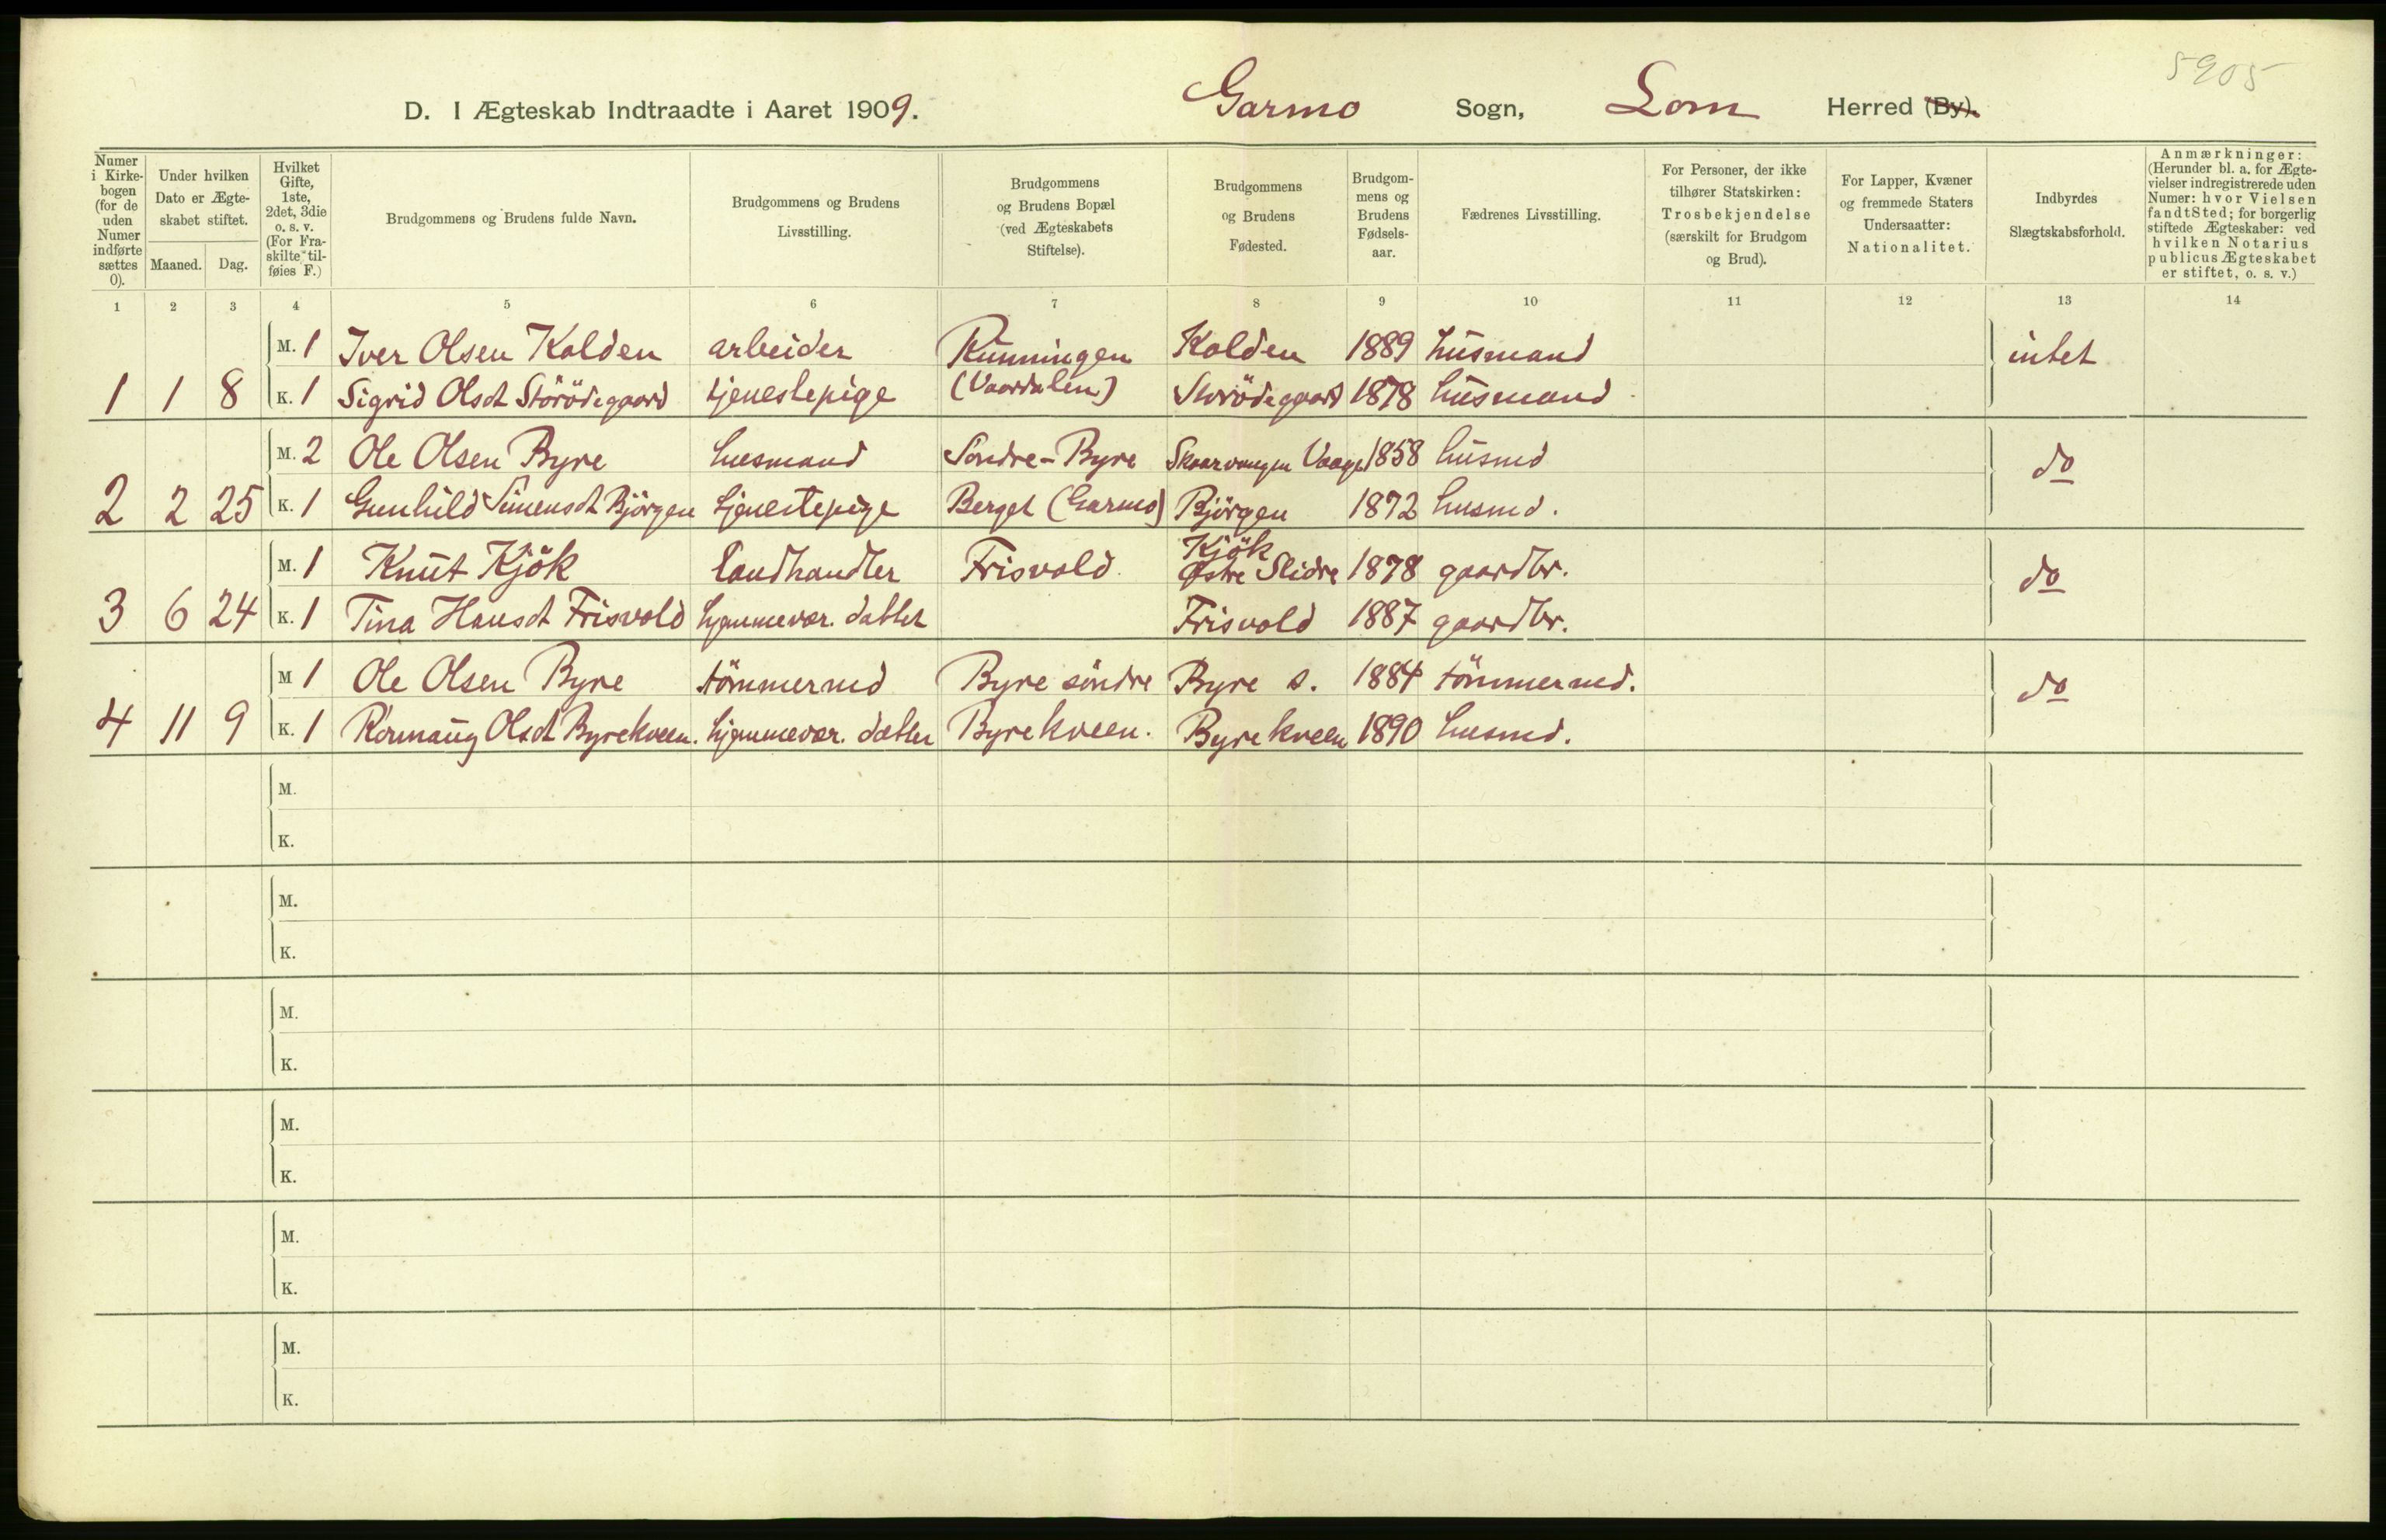 5905
D. I Ægteskab Indtraadte i Aaret 1909. Garmo Sogn, Lom Herred (By).
Numer i Kirkebogen (for de uden Numer indførte sættes 0).
Under hvilken Dato er Ægteskabet stiftet.
Maaned. Dag.
Hvilket Gifte, 1ste, 2det, 3die o. s. v. (For Fraskilte tilføies F.)
Brudgommens og Brudens fulde Navn.
Brudgommens og Brudens Livsstilling.
Brudgommens og Brudens Bopæl (ved Ægteskabets Stiftelse).
Brudgommens og Brudens Fødested.
Brudgommens og Brudens Fødselsaar.
Fædrenes Livsstilling.
For Personer, der ikke tilhører Statskirken: Trosbekjendelse (særskilt for Brudgom og Brud).
For Lapper, Kvæner og fremmede Staters Undersaatter: Nationalitet.
Indbyrdes Slægtskabsforhold.
Anmærkninger: (Herunder bl. a. for Ægtevielser indregistrerede uden Numer: hvor Vielsen fandt Sted; for borgerlig stiftede Ægteskaber: ved hvilken Notarius publicus Ægteskabet er stiftet, o. s. v.)
1 2 3 4 5 6 7 8 9 10 11 12 13 14
M. 1 Iver Olsen Kolden arbeider Kolden 1889 husmand intet
1 1 8 K. 1 Sigrid Olsdt Storödegaard tjenestepige (Vaardalen) Storödegaard 1878 husmand
M. 2 Ole Olsen Byre husmand Söndre-Byre Skaarvangen Vaage 1858 husmd do
2 2 25 K. 1 Gunhild Simensdt Björgen tjenestepige Berget (Garmo) Björgen 1872 husmd.
M. 1 Knut Kjök landhandler Frisvold Kjök Østre Slidre 1878 gaardbr. do
3 6 24 K. 1 Tina Hansdt Frisvold hjemmevær. datter Frisvold 1887 gaardbr.
M 1 Ole Olsen Byre tömmermd Byre söndre Byre s. 1884 tömmermd. do
4 11 9 K. 1 Olsdt Byrekveen. hjemmevær. datter Byrekveen. Byrekveen 1890 husmd.
M.
K.
M.
K.
M.
K.
M.
K.
M.
K.
M.
K.